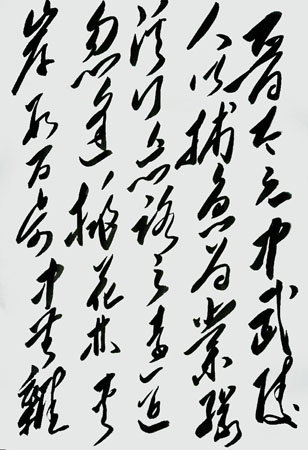 晉太元中武陵
人以捕魚為業緣
溪行忘路之遠近
忽逢桃花林夾
岸數百步中無雜